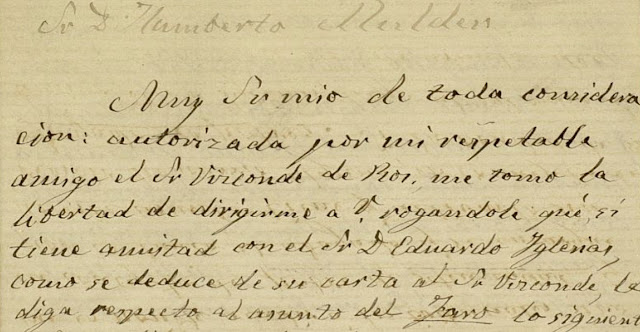 Sr D Humberto
Muy Sr mio de toda considera
cion: autorizada por mi respetable
amigo el Sr Vizconde de Ros, me tomo la
libertad de dirigirme a V. rogandole que, si
tiene amistad con el Sr D Eduardo Yglesias,
como se deduce de su carta al Sr Vizconde, le
diga respecto al asunto del Jaro lo siguient